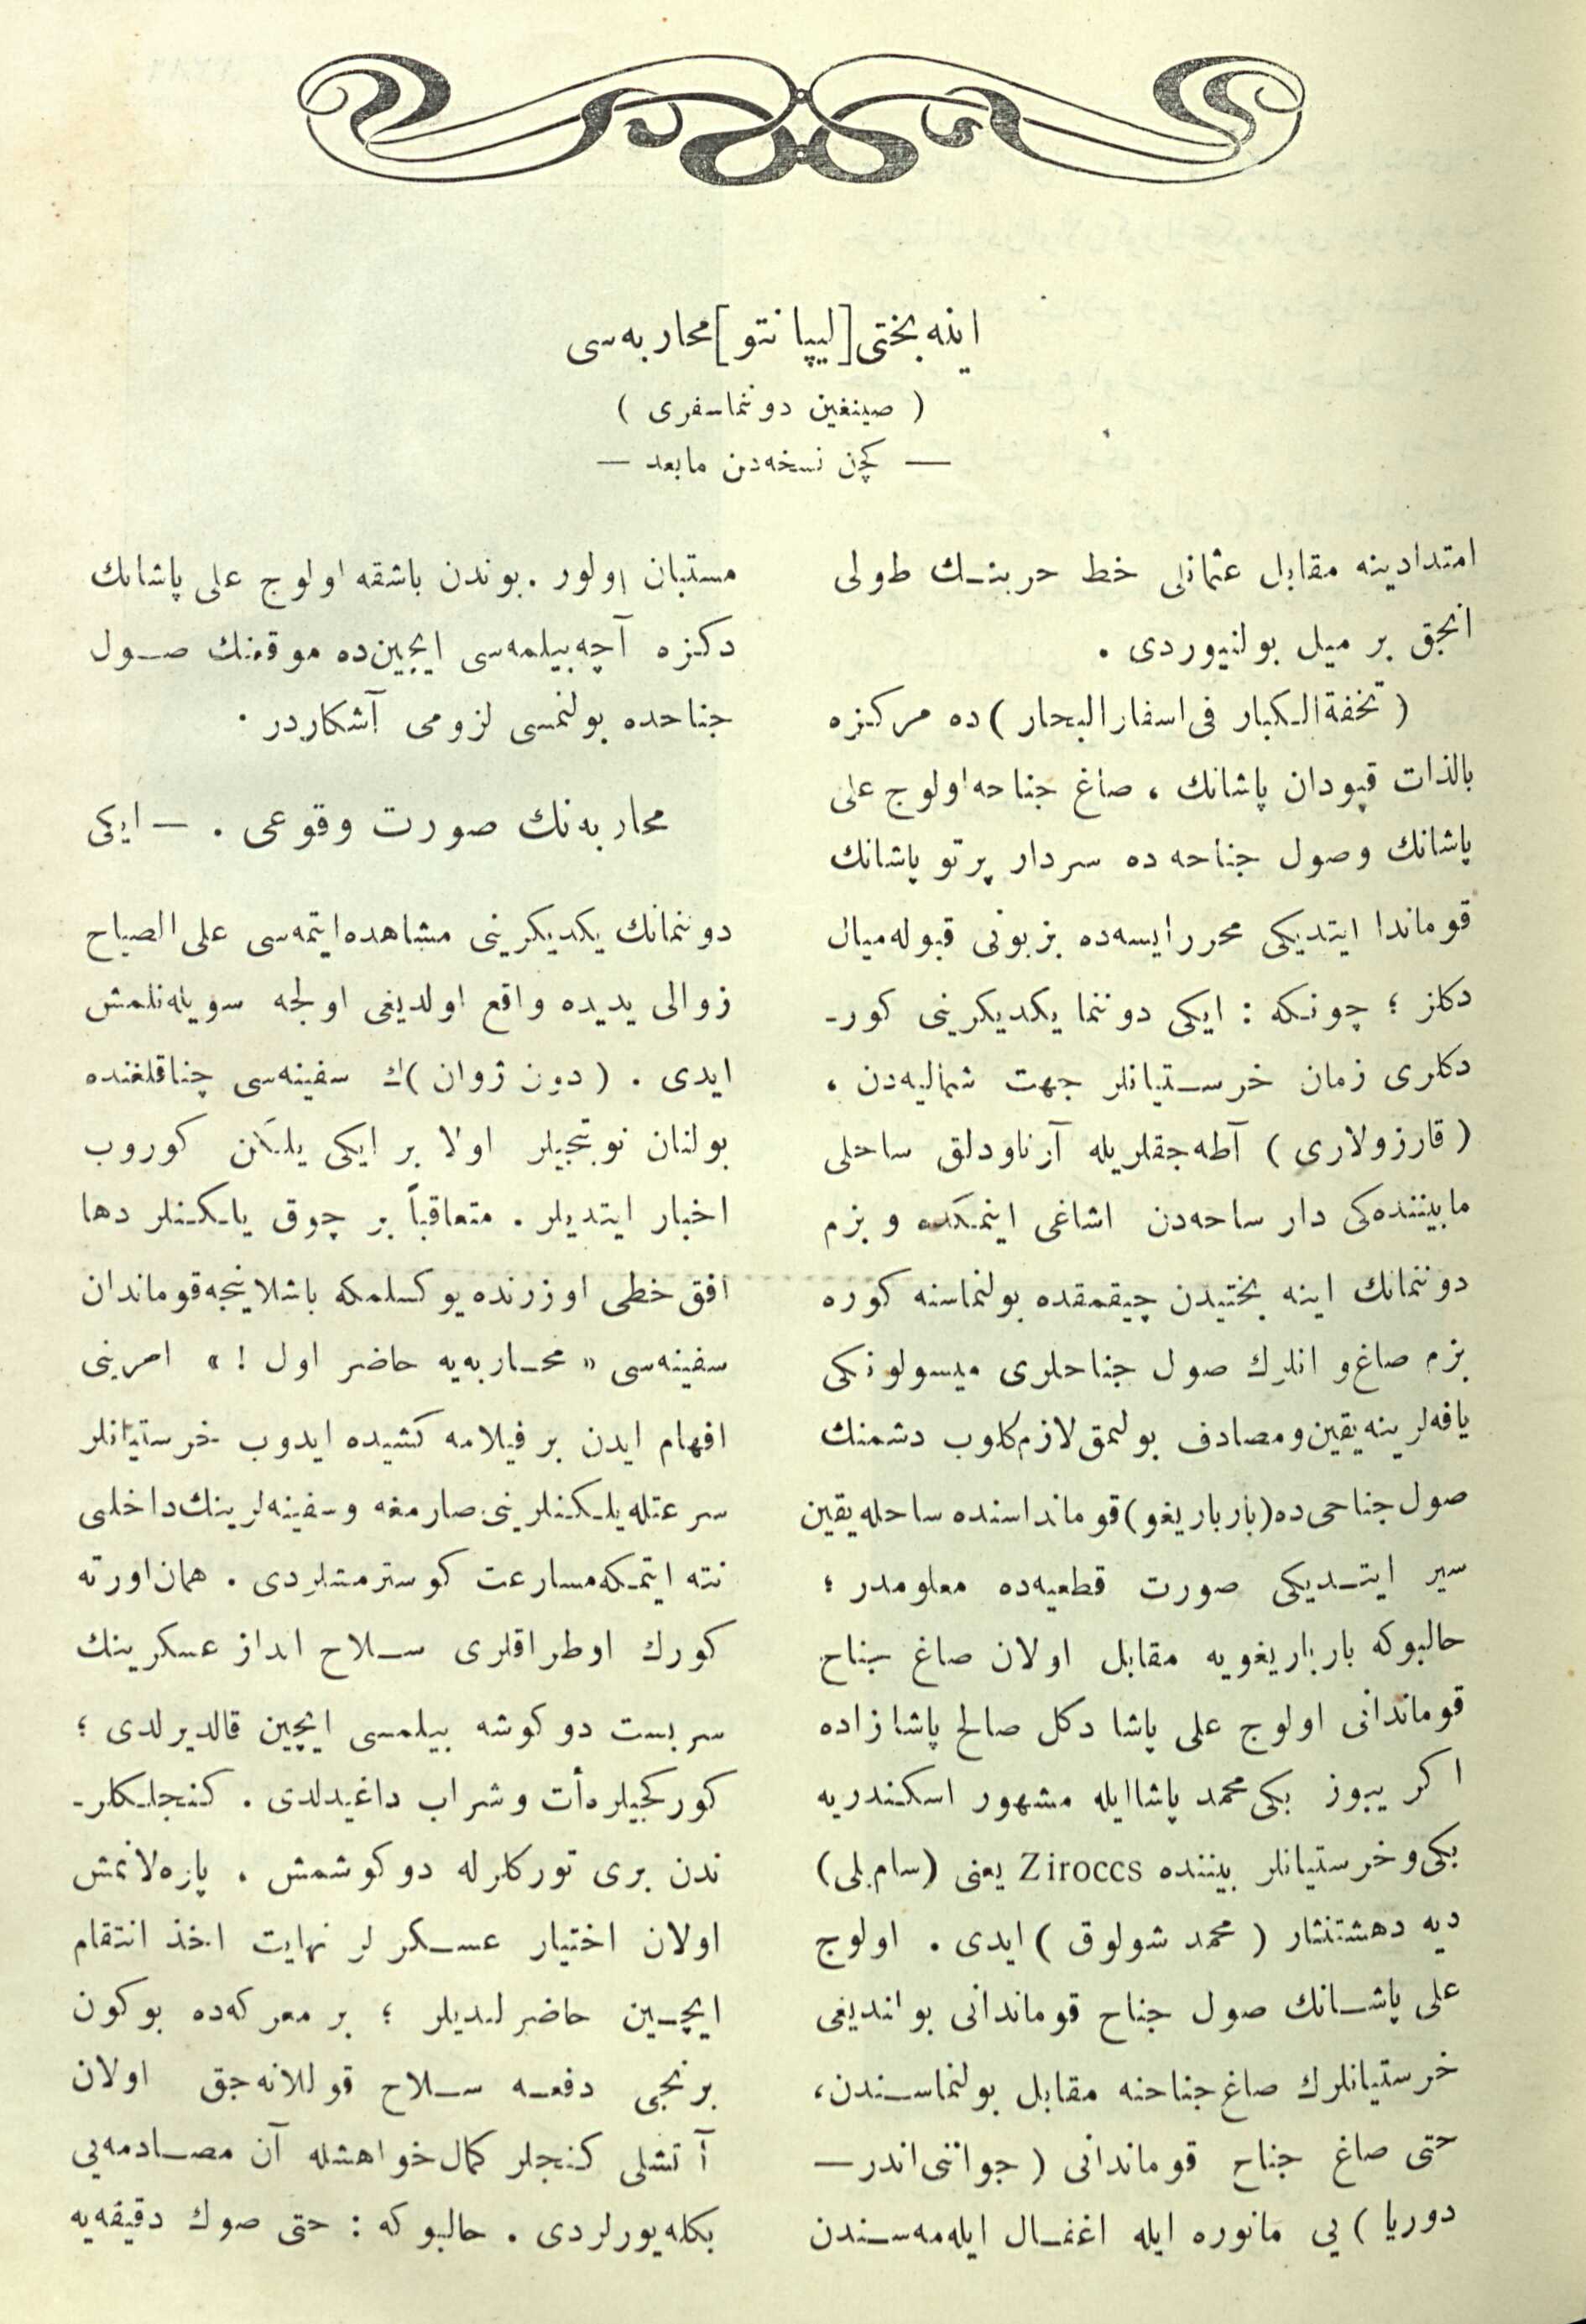 اینه بختی [لیپانتو] محاربه‌سی
( صینغین دوننما سفری )
— كچن نسخه‌دن مابعد —
امتدادینه مقابل عثمانلی خط حربنـك طولی
انجق بر میل بولنیوردی .
( تحفة الـكبار فی اسفار البحار ) ده مركزه
بالذات قپودان پاشانك ، صاغ جناحه اولوج علی
پاشانك وصول جناحه ده سردار پرتو پاشانك
قوماندا ایتدیكی محرر ایسه‌ده بز بونی قبوله میال
دكلز ؛ چونـكه : ایكی دوننما یكدیكرینی كور-
دكلری زمان خرسـتیانلر جهت شمالیه‌دن ،
( قارزولاری ) آطه‌جقلریله آرناودلق ساحلی
مابیننده‌كی دار ساحه‌دن اشاغی اینمـكده و بزم
دوننمانك اینه بختیدن چیقمقده بولنماسنه كوره
بزم صاغ و انلرك صول جناحلری میسولونكی
یافه‌لرینه یقین ومصادف بولنمق لازم كلوب دشمنك
صول جناحی ده (بارباریغو) قومانداسنده ساحله یقین
سیر ایتـدیكی صورت قطعیه‌ده معلومدر ؛
حالبوكه بارباریغویه مقابل اولان صاغ جناح
قوماندانی اولوج علی پاشا دكل صالح پاشا زاده
اكریبوز بكی محمد پاشا ایله مشهور اسكندریه
بكی و خرستیانلر بیننده Ziroccs یعنی (سام یلی)
دیه دهشتنثار ( محمد شولوق ) ایدی . اولوج
علی پاشـانك صول جناح قوماندانی بولندیغی
خرستیانلرك صاغ جناحنه مقابل بولنماسـندن،
حتی صاغ جناح قوماندانی ( جواننی اندر—
دوریا ) یی مانوره ایله اغفـال ایله‌مه‌سـندن
مستبان اولور . بوندن باشقه اولوج علی پاشانك
دكزه آچه‌بیلمه‌سی ایچین ده موقعنك صـول
جناحده بولنمسی لزومی آشكاردر .
محاربه‌نك صورت وقوعی . — ایكی
دوننمانك یكدیكرینی مشاهده ایتمه‌سی علی الصباح
زوالی یدیده واقع اولدیغی اولجه سویله‌نلمش
ایدی . ( دون ژوان )ك سفینه‌سی چناقلغنده
بولنان نوبتجیلر اولا بر ایكی یلـكن كوروب
اخبار ایتدیلر . متعاقباً بر چوق یلـكنلر دها
افق خطی اوزرنده یوكسلمكه باشلاینجه قوماندان
سفینه‌سی « محـاربه‌یه حاضر اول ! » امرینی
افهام ایدن بر فیلامه كشیده ایدوب خرستیانلر
سرعتله یلـكنلرینی صارمغه و سفینه‌لرینك داخلی
نته ایتمـكه مسارعت كوسترمشلردی . همان اورته
كورك اوطراقلری سـلاح انداز عسكرینك
سربست دوكوشه بیلمسی ایچین قالدیرلدی ؛
كوركجیلره أت و شراب داغیدلدی . كنجلـكلر-
ندن بری توركلرله دوكوشمش ، پاره‌لانمش
اولان اختیار عسـكر لر نهایت اخذ انتقام
ایچـین حاضرلندیلر ؛ بر معركه‌ده بوكون
برنجی دفعـه سـلاح قوللانه‌جق اولان
آتشلی كنجلر كمال خواهشله آن مصـادمه‌یی
بكله‌یورلردی . حالبوكه : حتی صوك دقیقه‌یه